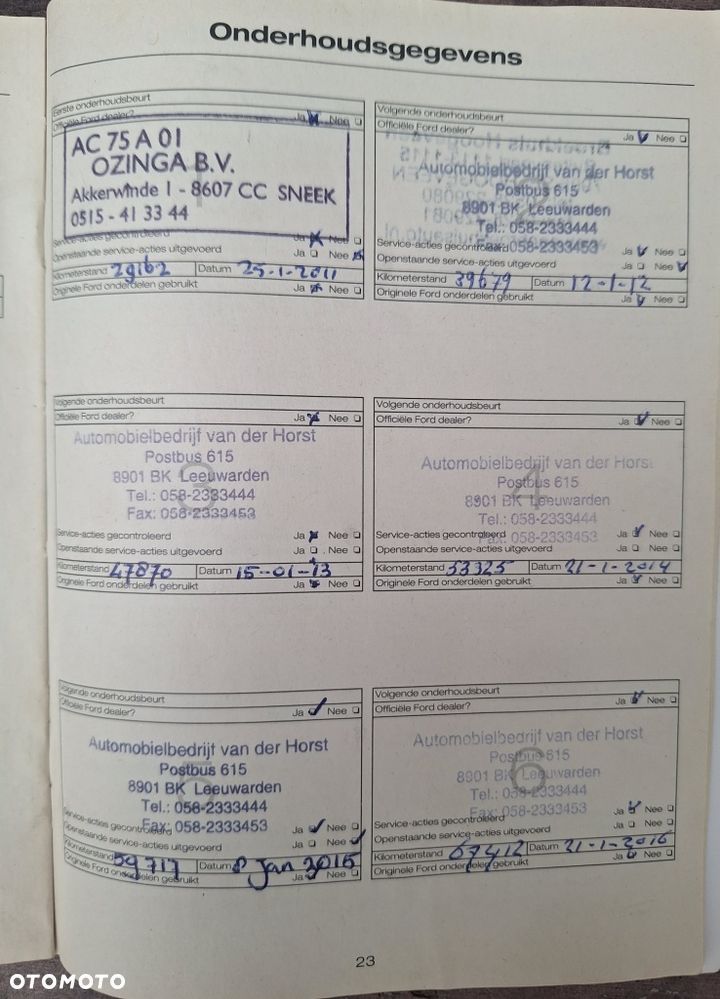 Onderhoudsgegevens
Eerste onderhoudsbeurt
Officiële Ford dealer? Ja Nee
AC 75 A 01
OZINGA B.V.
Akkerwinde 1 - 8607 CC SNEEK
0515 - 41 33 44
Service-acties gecontroleerd Ja Nee
Openstaande service-acties uitgevoerd Ja Nee
Kilometerstand 29162 Datum 25-1-2011
Originele Ford onderdelen gebruikt Ja Nee
Volgende onderhoudsbeurt
Officiële Ford dealer? Ja Nee
Automobielbedrijf van der Horst
Postbus 615
8901 BK Leeuwarden
Tel.: 058-2333444
Fax: 058-2333453
Service-acties gecontroleerd Ja Nee
Openstaande service-acties uitgevoerd Ja Nee
Kilometerstand 39679 Datum 12-1-12
Originele Ford onderdelen gebruikt Ja Nee
Volgende onderhoudsbeurt
Officiële Ford dealer? Ja Nee
3
Automobielbedrijf van der Horst
Postbus 615
8901 BK Leeuwarden
Tel.: 058-2333444
Fax: 058-2333453
Service-acties gecontroleerd Ja Nee
Openstaande service-acties uitgevoerd Ja Nee
Kilometerstand 47870 Datum 15-01-13
Originele Ford onderdelen gebruikt Ja Nee
Volgende onderhoudsbeurt
Officiële Ford dealer? Ja Nee
4
Automobielbedrijf van der Horst
Postbus 615
8901 BK Leeuwarden
Tel.: 058-2333444
Fax: 058-2333453
Service-acties gecontroleerd Ja Nee
Openstaande service-acties uitgevoerd Ja Nee
Kilometerstand 53325 Datum 21-1-2014
Originele Ford onderdelen gebruikt Ja Nee
Volgende onderhoudsbeurt
Officiële Ford dealer? Ja Nee
5
Automobielbedrijf van der Horst
Postbus 615
8901 BK Leeuwarden
Tel.: 058-2333444
Fax: 058-2333453
Service-acties gecontroleerd Ja Nee
Openstaande service-acties uitgevoerd Ja Nee
Kilometerstand 59717 Datum 8 Jan 2015
Originele Ford onderdelen gebruikt Ja Nee
Volgende onderhoudsbeurt
Officiële Ford dealer? Ja Nee
6
Automobielbedrijf van der Horst
Postbus 615
8901 BK Leeuwarden
Tel.: 058-2333444
Fax: 058-2333453
Service-acties gecontroleerd Ja Nee
Openstaande service-acties uitgevoerd Ja Nee
Kilometerstand 67412 Datum 21-1-2016
Originele Ford onderdelen gebruikt Ja Nee
23
OTOMOTO